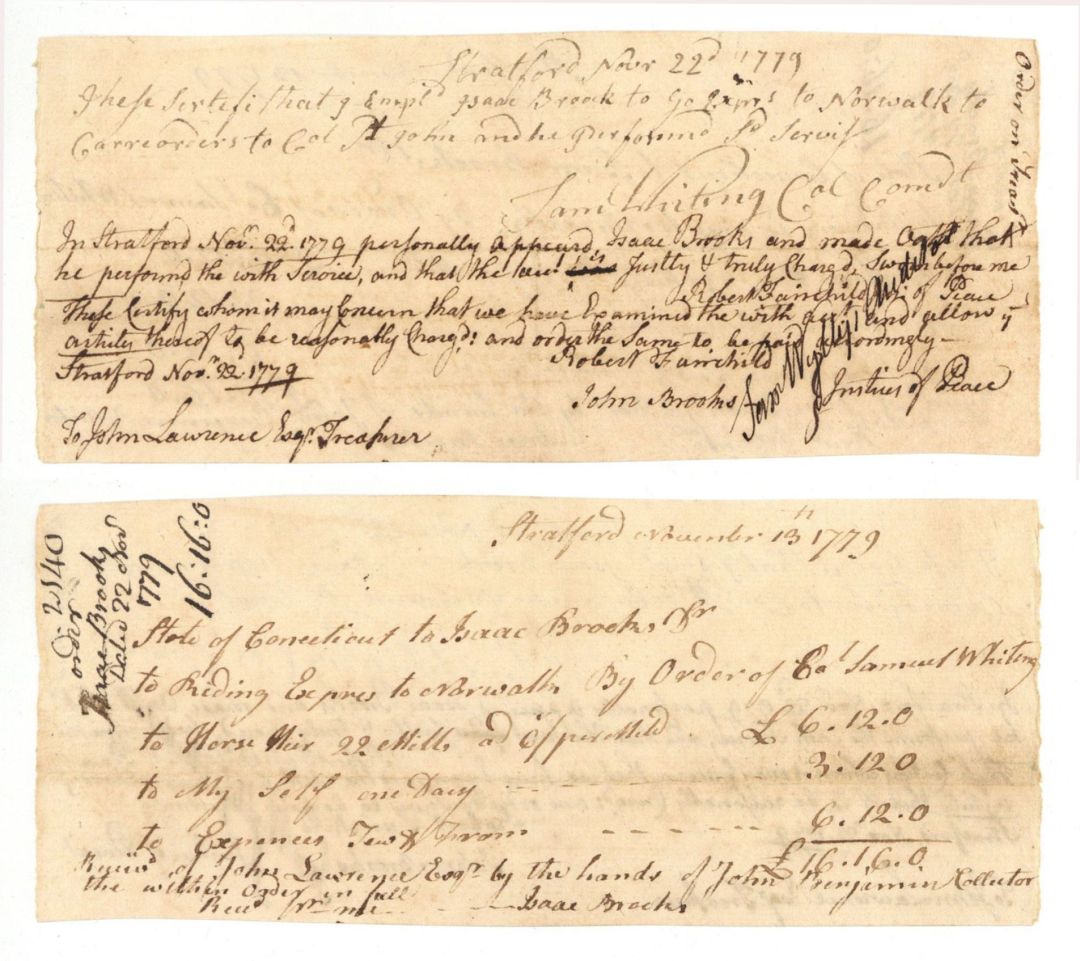 Stratford Novr 22d 1779
These Sertefi that I Empld Isaac Brook to Go Expres to Norwalk to
Carre orders to Col St John and he performd Sd Servis
Saml Whiting Col Comdt
In Stratford Novr. 22d. 1779 personally appeard, Isaac Brooks and made Oath that
he performd the with Service, and that the acct is Justly & truly Chargd, Sworn before me
Robert Fairchild Jus: of Peace
These Certify whom it may Concern that we have Examined the with acct and allow ye
articles thereof to be reasonally Chargd: and order the Same to be paid accordingly
Stratford Novr. 22. 1779
Robert Fairchild
John Brooks
Justices of Peace
To John Lawrence Esqr. Treasurer
Order on Treasr
Stratford November 13th 1779
State of Conecticut to Isaac Brooks Dr
to Riding Expres to Norwalk By Order of Col Samuel Whiting
to Horse Hier 22 Mills ad 6/ per Mild £ 6.12.0
to My Self one Day 3.12 0
to Expences Tew & From 6.12.0
£ 16.16.0
Receivd of John Lawrence Esqr by the hands of John Benjamin Collector
the within Order in full
Recd pr me Isaac Brooks
order 2540
Isaac Brooks
Dated 22 Nov
1779
16:16:0